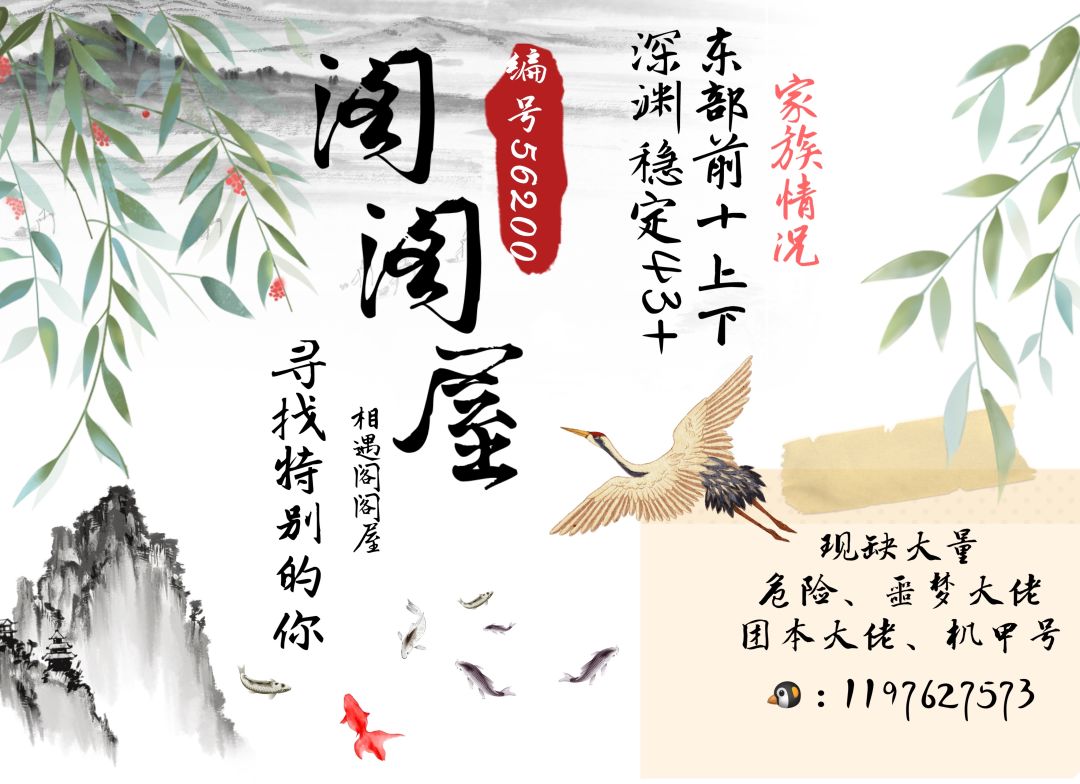 家族情况
东部前十上下
深渊稳定43+
编号56200
阁阁屋
相遇阁阁屋
寻找特别的你
现缺大量
危险、噩梦大佬
团本大佬、机甲号
：1197627573